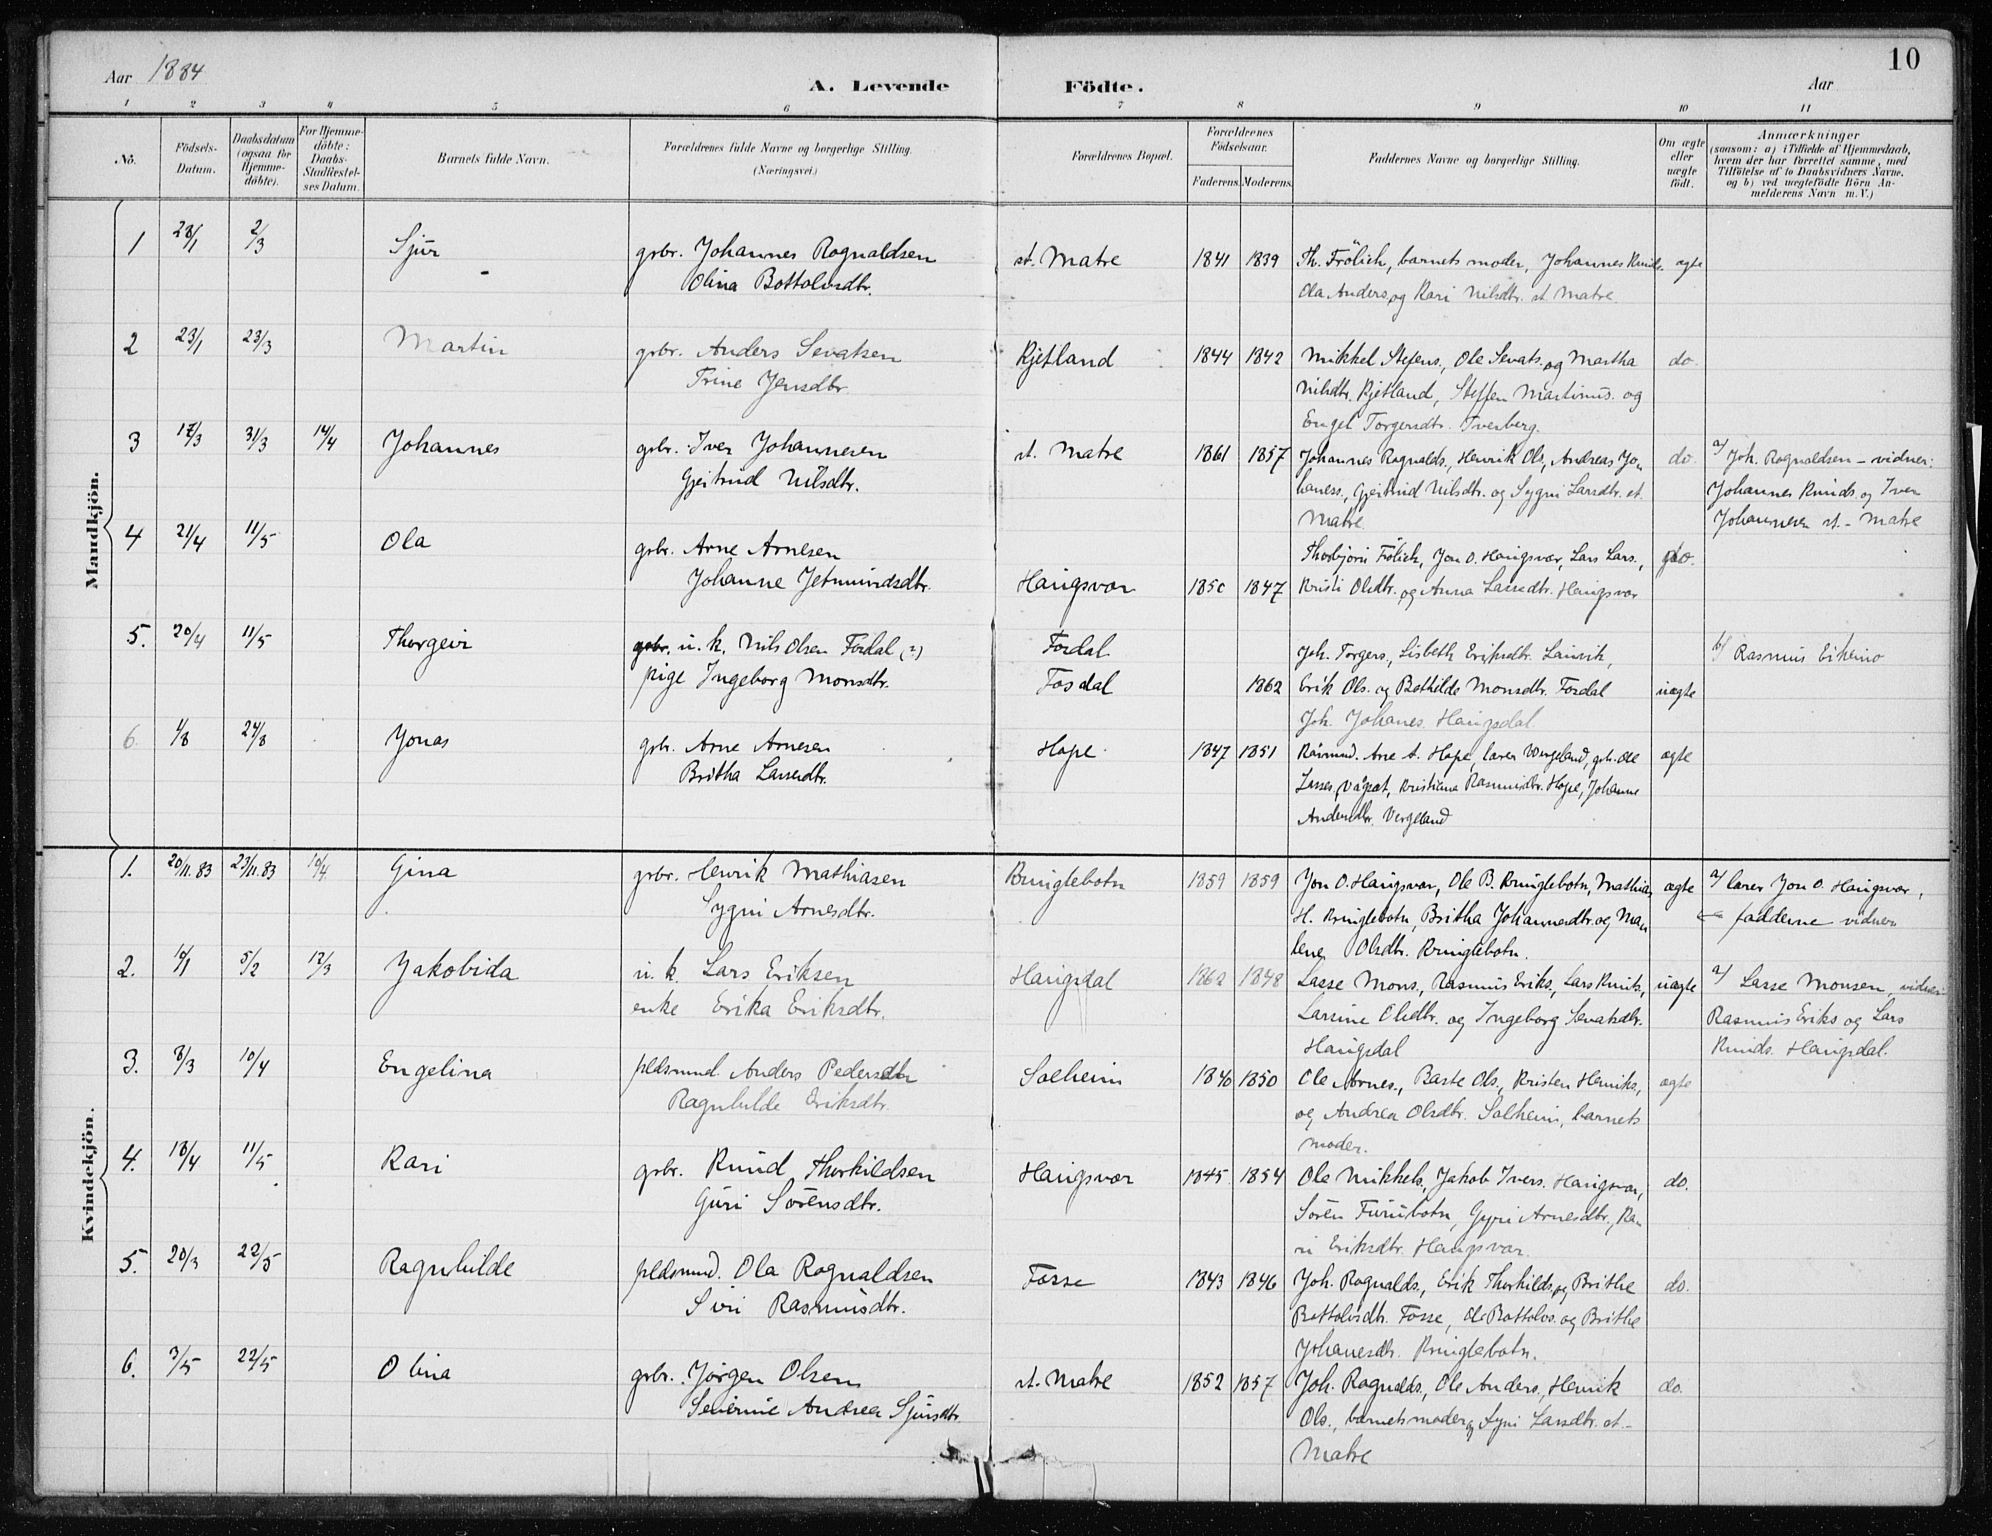 10
Aar 1884
A. Levende Födte.
Aar
1 2 3 4 5 6 7 8 9 10 11
No.
Födsels-Datum.
Daabsdatum (ogsaa for Hjemme-döbte).
For Hjemme-döbte: Daabs-Stadfæstel-ses Datum.
Barnets fulde Navn.
Forældrenes fulde Navne og borgerlige Stilling.
(Næringsvei.)
Forældrenes Bopæl.
Forældrenes Födselsaar.
Faderens. Moderens.
Faddernes Navne og borgerlige Stilling.
Om ægte eller uægte födt.
Anmærkninger
(saasom: a) i Tilfælde af Hjemmedaab,
hvem der har forrettet samme, med
Tilföielse af to Daabsvidners Navne,
og b) ved uægtefödte Börn An-
melderens Navn m. V.)
Mandkjön.
1 28/1 2/3 Sjur grbr. Johannes Rognaldsen st. Matre 1841 1839 Th. Frölich, barnets moder, Johannes Knuds. ægte
Olina Bottolvsdtr. Ola Anders. og Kari Nilsdtr. st. Matre
2 23/1 23/3 Martin grbr. Anders Sevatsen Kjetland 1844 1842 Mikkel Stefens., Ole Sevats. og Martha do.
Trine Jensdtr. Nilsdtr. Kjetland, Steffen Martinus. og
Engel Torgersdtr. Tverberg.
3 17/3 31/3 14/4 Johannes grbr. Iver Johannesen st. Matre 1861 1857 Johannes Rognalds., Henrik Ols., Andreas Jo- do. a/ Joh. Rognaldsen – vidner:
Gjertrud Nilsdtr. haness., Gjertrud Nilsdtr. og Sygni Larsdtr. st. Johannes Knuds. og Iver
Matre Johannesen st. Matre
4 21/4 11/5 Ola grbr. Arne Arnesen Thorbjörn Frölich, Jon O. Haugsvær, Lars Lars., do.
Johanne Jetmundsdtr. Haugsvær 1850 1847 Kristi Olsdtr. og Anna Lassedtr. Haugsvær
5. 20/4 11/5 Thorgeir u. k. Nils Olsen Fosdal (?) Fosdal Joh. Torgers., Lisbeth Eriksdtr. b/ Rasmus
pige Ingeborg Monsdtr. Fosdal 1862 Erik Ols. og Bothilde Monsdtr. Fosdal uægte
Joh. Johanes. Haugsdal
6. 1/8 24/8 Jonas gbr. Arne Arnesen Hope 1847 1851 Arne A. Hope, lærer Vergeland, Ole ægte
Britha Lassesdtr. Lasses. Kristiane Rasmusdtr. Hope, Johanne
Andersdtr. Vergeland
Kvindekjön.
1. 20/11.83 23/11.83 10/4 Gina grbr. Henrik Mathiasen Kringlebotn 1859 1859 Jon O. Haugsvær, Ole B. Kringlebotn, Mathias ægte a/ lærer Jon O. Haugsvær,
Sygni Arnesdtr. H. Kringlebotn, Britha Johannesdtr. og Mar- fadderne vidner
lene Olsdtr. Kringlebotn.
2. 10/1 5/2 12/3 Jakobida u. k. Lars Eriksen Haugsdal 1862 1848 Lasse Mons., Rasmus Eriks., Lars Knuts., uægte a/ Lasse Monsen, vidner:
enke Erika Eriksdtr. Larsine Olsdtr. og Ingeborg Sevatsdtr. Rasmus Eriks og Lars
Haugsdal Knuds. Haugsdal.
3. 8/3 10/4 Engelina pldsmnd. Anders Pedersen Solheim 1840 1850 Ole Arnes., Baste Ols., Kristen Henriks., ægte
Ragnhilde Eriksdtr. og Andrea Olsdtr. Solheim, barnets
moder.
4. 18/4 11/5 Kari grbr. Knud Thorkildsen Haugsvær 1845 1854 Ola Mikkels., Jakob Ivers. Haugsvær, do.
Guri Sörensdtr. Sören Furubotn, Gyri Arnesdtr., Ka-
ri Eriksdtr. Haugsvær.
5. 20/3 22/5 Ragnhilde pldsmnd. Ola Rognaldsen Fosse 1843 1846 Joh. Rognalds., Erik Thorkilds. og Brithe do.
Siri Rasmusdtr. Bottolvsdtr. Fosse, Ole Bottolvs. og Brithe
Johanesdtr. Kringlebotn.
6. 3/5 22/5 Olina grbr. Jörgen Olsen st. Matre 1852 1857 Joh. Rognalds., Ole Anders., Henrik do.
Severine Andrea Sjursdtr. Ols., barnets moder og Syni Larsdtr. st.
Matre